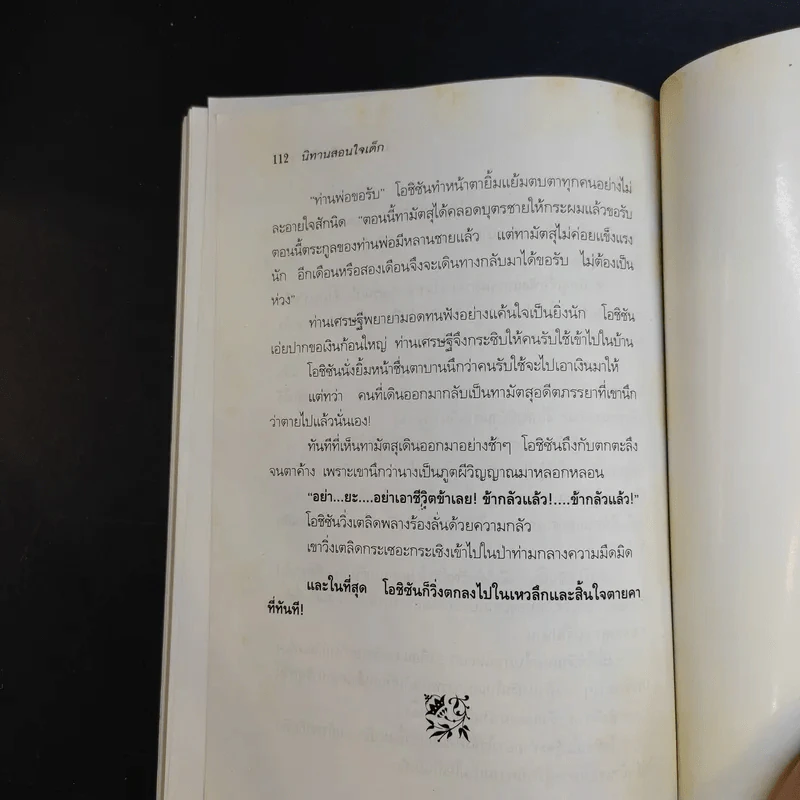 112 นิทานสอนใจเด็ก
"ท่านพ่อขอรับ" โอชิซันทำหน้าตายิ้มแย้มตบตาทุกคนอย่างไม่
ละอายใจสักนิด "ตอนนี้ทามัตสุได้คลอดบุตรชายให้กระผมแล้วขอรับ
ตอนนี้ตระกูลของท่านพ่อมีหลานชายแล้ว แต่ทามัตสุไม่ค่อยแข็งแรง
นัก อีกเดือนหรือสองเดือนจึงจะเดินทางกลับมาได้ขอรับ ไม่ต้องเป็น
ห่วง"
ท่านเศรษฐีพยายามอดทนฟังอย่างแค้นใจเป็นยิ่งนัก โอชิซัน
เอ่ยปากขอเงินก้อนใหญ่ ท่านเศรษฐีจึงกระซิบให้คนรับใช้เข้าไปในบ้าน
โอชิซันนั่งยิ้มหน้าชื่นตาบานนึกว่าคนรับใช้จะไปเอาเงินมาให้
แต่ทว่า คนที่เดินออกมากลับเป็นทามัตสุอดีตภรรยาที่เขานึก
ว่าตายไปแล้วนั่นเอง!
ทันทีที่เห็นทามัตสุเดินออกมาอย่างช้าๆ โอชิซันถึงกับตกตะลึง
จนตาค้าง เพราะเขานึกว่านางเป็นภูตผีวิญญาณมาหลอกหลอน
"อย่า...ยะ....อย่าเอาชีวิตข้าเลย! ข้ากลัวแล้ว!....ข้ากลัวแล้ว!"
โอชิซันวิ่งเตลิดพลางร้องลั่นด้วยความกลัว
เขาวิ่งเตลิดกระเซอะกระเซิงเข้าไปในป่าท่ามกลางความมืดมิด
และในที่สุด โอชิซันก็วิ่งตกลงไปในเหวลึกและสิ้นใจตายคา
ที่ทันที!